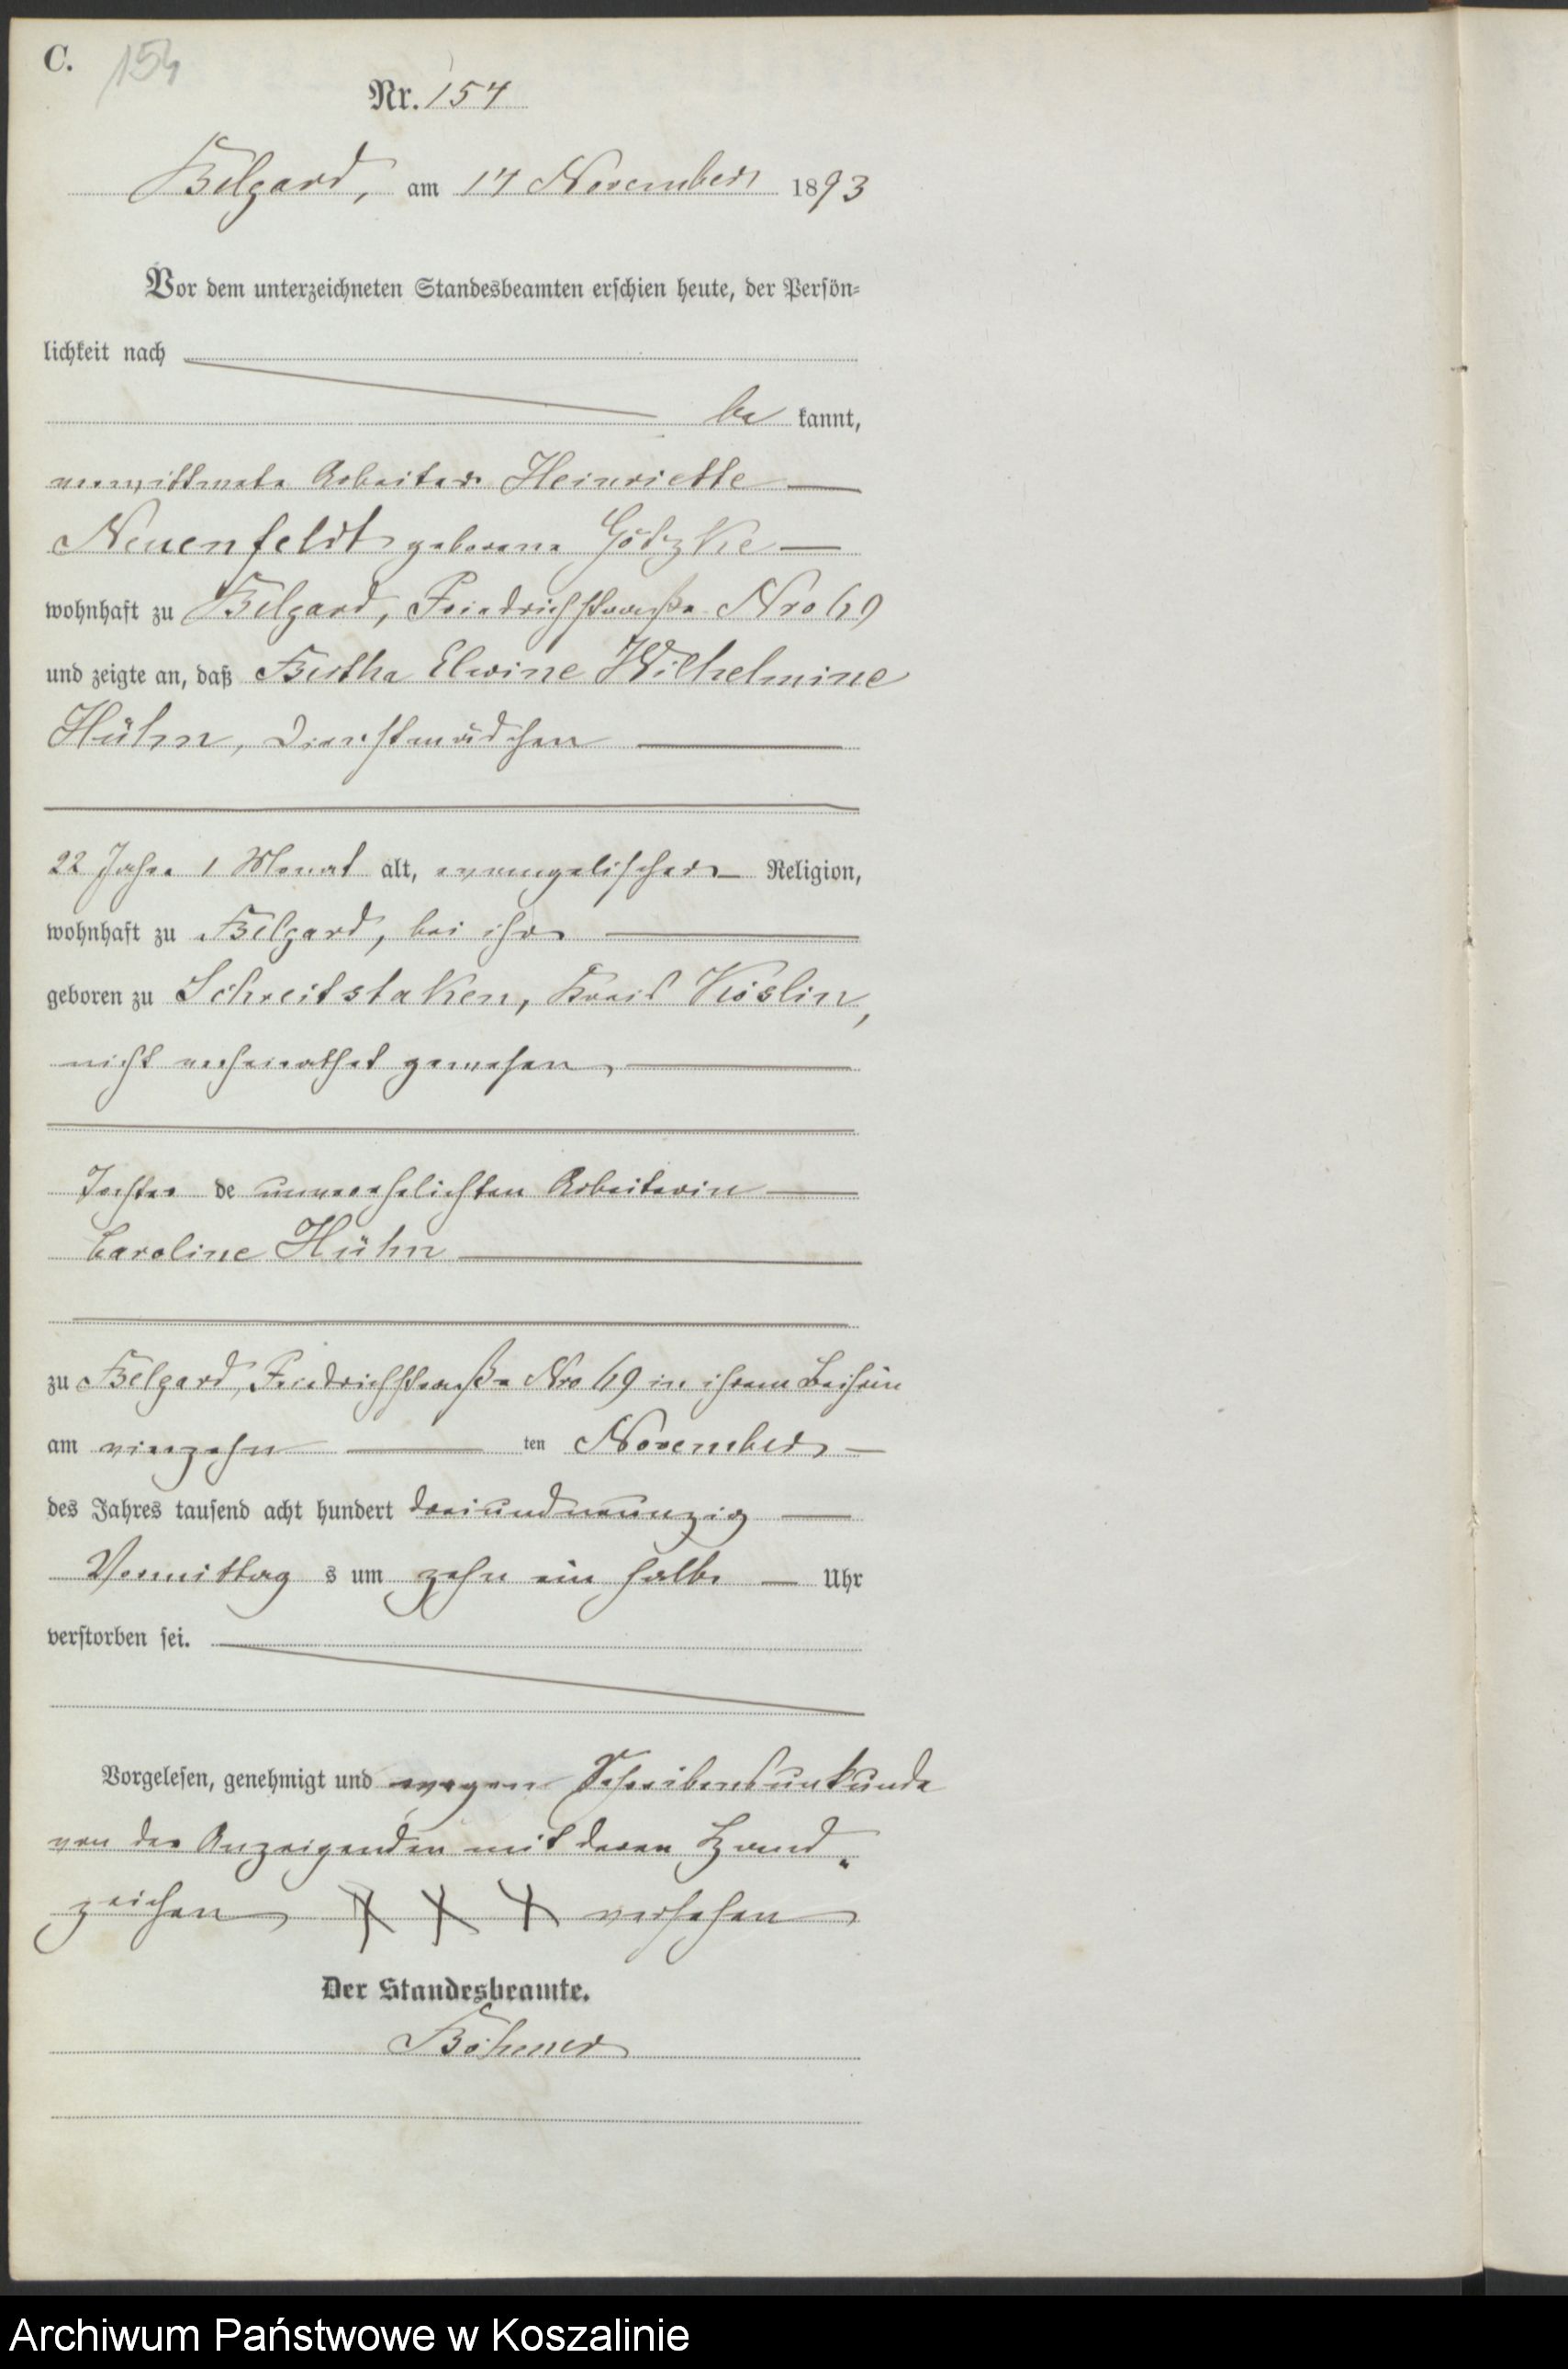 C. 154
Nr. 154
Belgard, am 14 November 1893
Vor dem unterzeichneten Standesbeamten erschien heute, der Persön-
lichkeit nach
be kannt,
verwittwete Arbeiter Heinriette
Neuenfeldt geborene Götzke
wohnhaft zu Belgard, Friedrichstraße Nro 69
und zeigte an, daß Bertha Elwine Wilhelmine
Hühn, Dienstmädchen
22 Jahre 1 Monat alt, evangelischer Religion,
wohnhaft zu Belgard, bei ihr
geboren zu Schreitstaken, Kreis Köslin,
nicht verheirathet gewesen,
Tochter de unverehelichten Arbeiterin
Caroline Hühn
zu Belgard, Friedrichstraße Nro 69 in ihrem Beisein
am vierzehn ten November
des Jahres tausend acht hundert dreiundneunzig
Vormittag s um zehn ein halb Uhr
verstorben sei.
Vorgelesen, genehmigt und wegen Schreibensunkunde
von der Anzeigenden mit deren Hand-
zeichen XXX versehen
Der Standesbeamte.
Böhmer
Archiwum Państwowe w Koszalinie